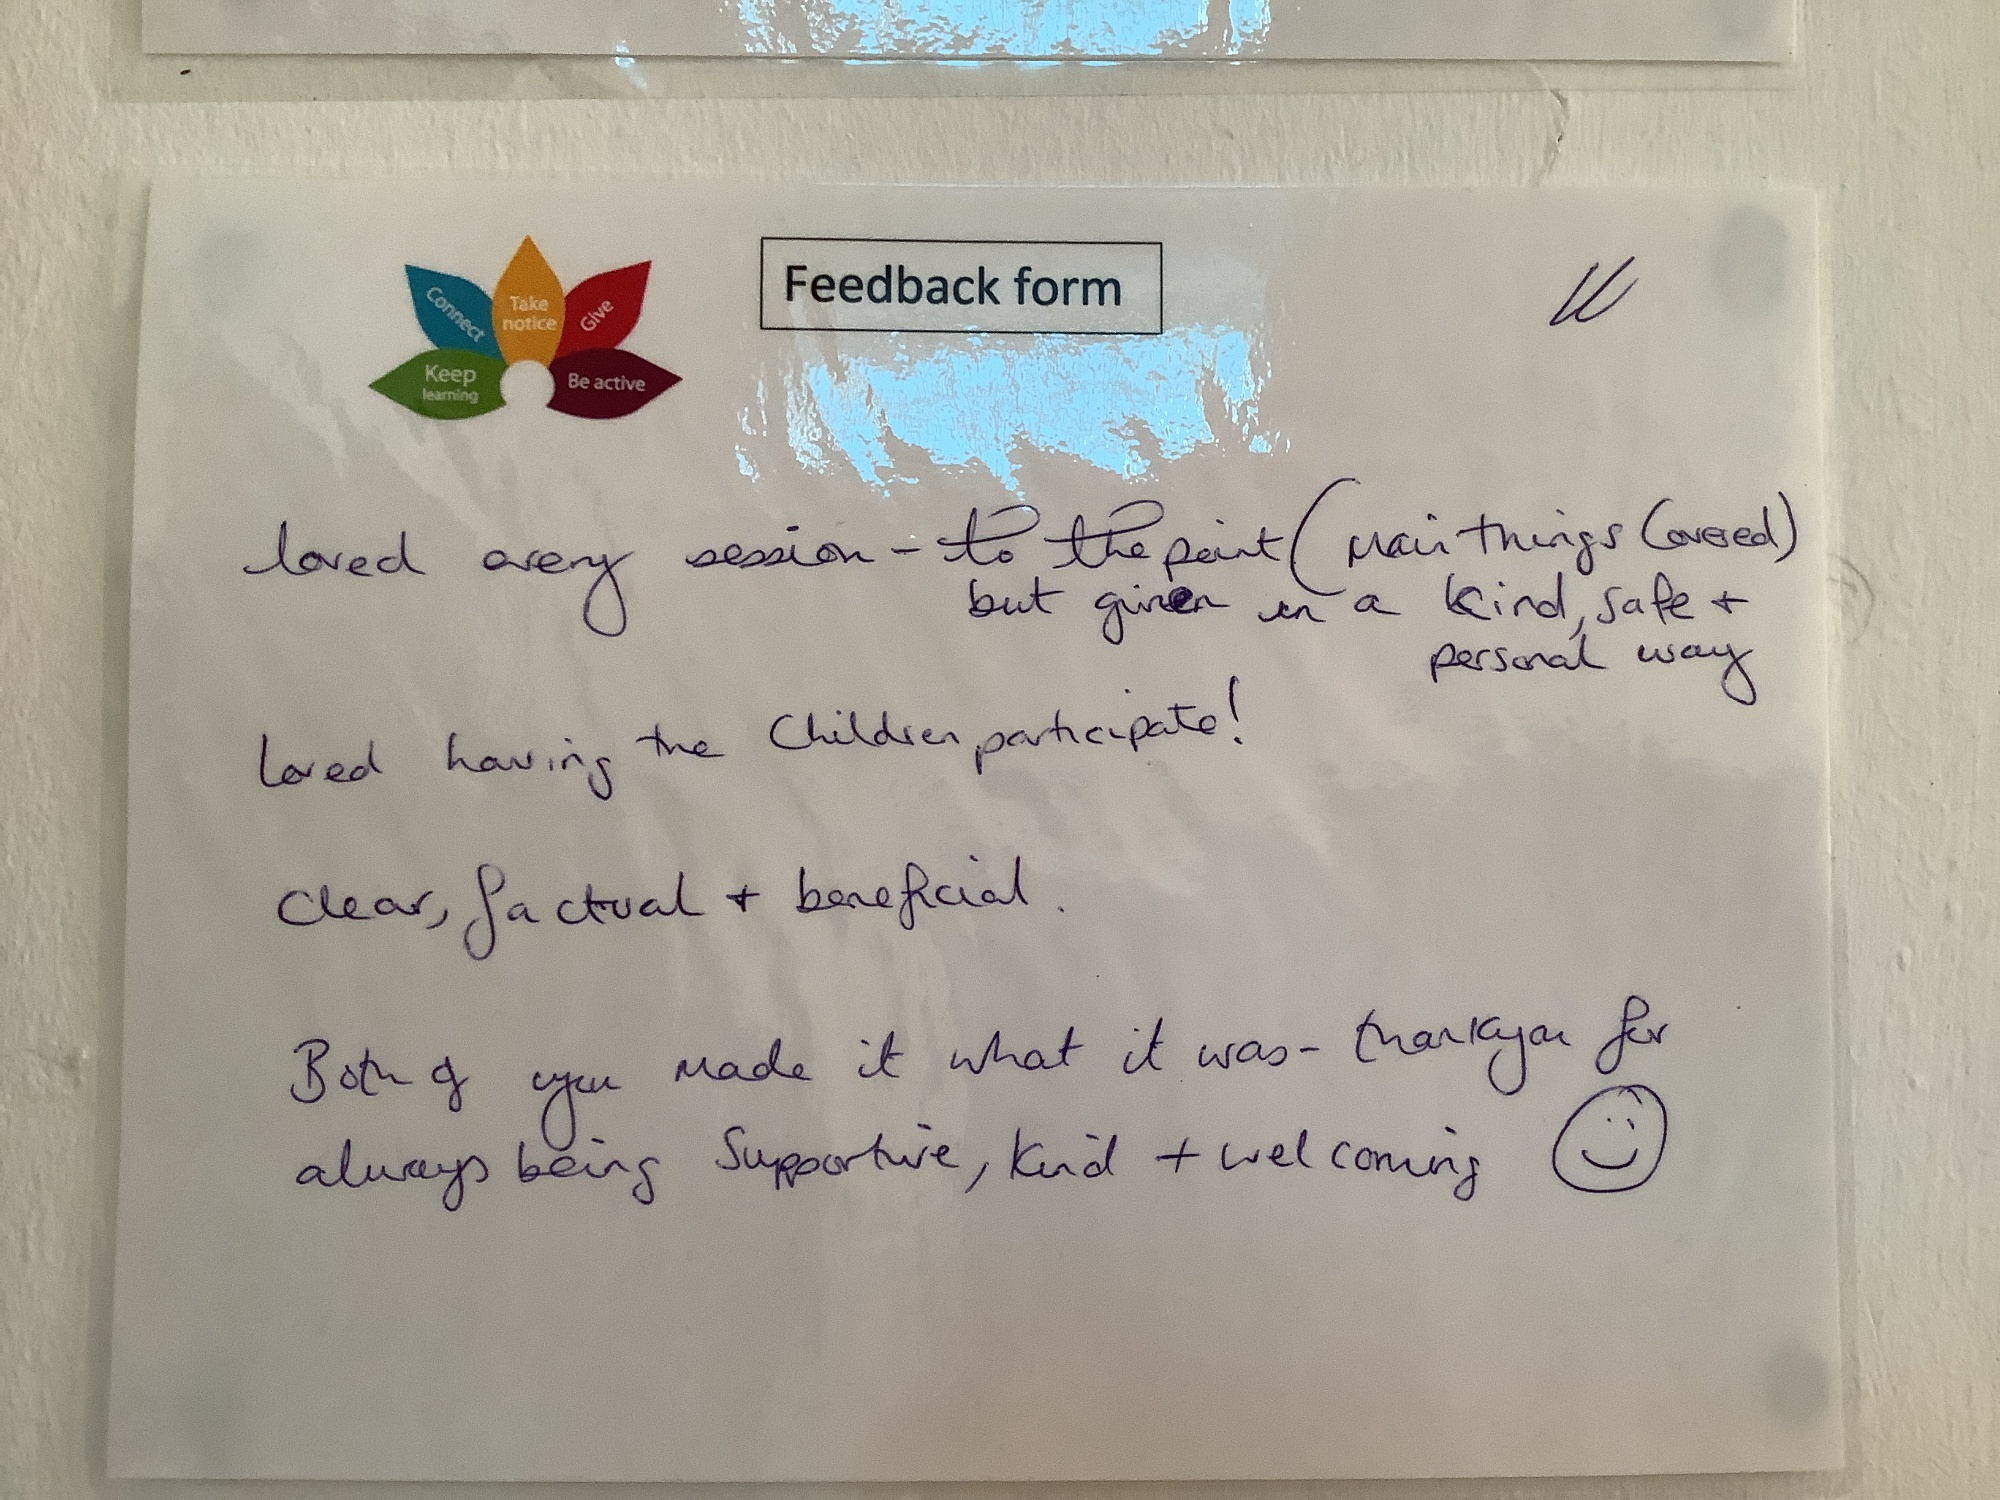 Connect
Take
notice
Give
Keep
learning
Be active
Feedback form
loved every session - to the point (Main things Covered)
but given in a kind, safe +
personal way
Loved having the Children participate!
Clear, factual + beneficial.
Both of you made it what it was - thankyou for
always being Supportive, kind + welcoming